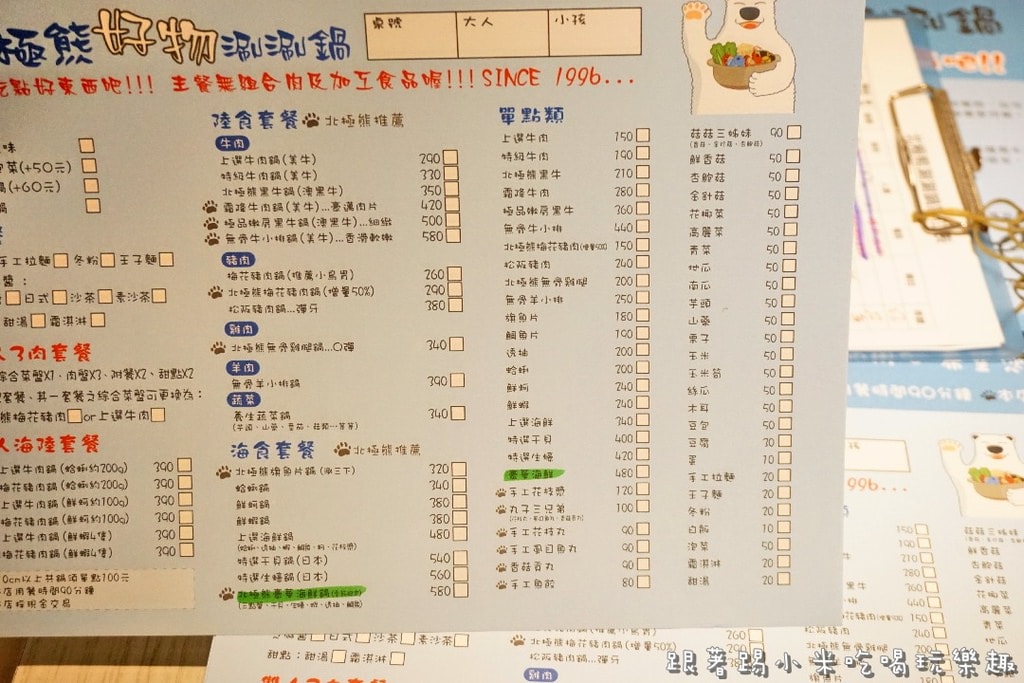 極熊好物涮涮鍋
桌號 大人 小孩
吃點好東西吧!!! 主餐無組合肉及加工食品喔!!! SINCE 1996...
味
泡菜(+50元)
鍋(+60元)
鍋
手工拉麵 冬粉 王子麵
醬:
日式 沙茶 素沙茶
甜湯 霜淇淋
人3肉套餐
綜合菜盤X1、肉盤X3、附餐X2、甜點X2
套餐、其一套餐之綜合菜盤可更換為:
熊梅花豬肉 or 上選牛肉
人海陸套餐
上選牛肉鍋(蛤蜊約200g) 390
梅花豬肉鍋(蛤蜊約200g) 390
上選牛肉鍋(鮮蚵約100g) 390
梅花豬肉鍋(鮮蚵約100g) 390
上選牛肉鍋(鮮蝦4隻) 390
梅花豬肉鍋(鮮蝦4隻) 390
0cm以上共鍋須單點100元
店用餐時間90分鐘
店採現金交易
陸食套餐 北極熊推薦
牛肉
上選牛肉鍋(美牛) 290
特級牛肉鍋(美牛) 330
北極熊黑牛鍋(澳黑牛) 350
霜降牛肉鍋(美牛)...豪邁肉片 420
極品嫩肩黑牛鍋(澳黑牛)...細緻 500
無骨牛小排鍋(美牛)...香滑軟嫩 580
豬肉
梅花豬肉鍋(推薦小鳥胃) 260
北極熊梅花豬肉鍋(增量50%) 290
松阪豬肉鍋...彈牙 380
雞肉
北極熊無骨雞腿鍋...Q彈 340
羊肉
無骨羊小排鍋 390
蔬菜
養生蔬菜鍋 340
(芋頭、山藥、番茄、菇類…等等)
海食套餐 北極熊推薦
北極熊旗魚片鍋(涮三下) 320
蛤蜊鍋 340
鮮蚵鍋 380
鮮蝦鍋 380
上選海鮮鍋 480
特選干貝鍋(日本) 540
特選生蠔鍋(日本) 560
北極熊豪華海鮮鍋 580
單點類
上選牛肉 150
特級牛肉 190
北極熊黑牛 210
霜降牛肉 280
極品嫩肩黑牛 360
無骨牛小排 440
北極熊梅花豬肉(增量50%) 150
松阪豬肉 240
北極熊無骨雞腿 200
無骨羊小排 250
旗魚片 180
鯛魚片 190
透抽 200
蛤蜊 200
鮮蚵 240
鮮蝦 240
上選海鮮 340
特選干貝 400
特選生蠔 420
豪華海鮮 480
手工花枝漿 120
丸子三兄弟 100
手工花枝丸 90
手工虱目魚丸 90
香菇貢丸 90
手工魚餃 80
菇菇三姊妹 90
(香菇、金針菇、杏鮑菇)
鮮香菇 50
杏鮑菇 50
金針菇 50
花椰菜 50
高麗菜 50
青菜 50
地瓜 50
南瓜 50
芋頭 50
山藥 50
栗子 50
玉米 50
玉米筍 50
絲瓜 50
木耳 50
豆包 50
豆腐 30
蛋 10
手工拉麵 20
王子麵 20
冬粉 20
白飯 10
泡菜 50
霜淇淋 20
甜湯 20
甜點:甜湯 霜淇淋
北極熊梅花豬肉鍋(增量50%) 290
松阪豬肉鍋...彈牙 380
雞肉
跟著踢小米吃喝玩樂趣